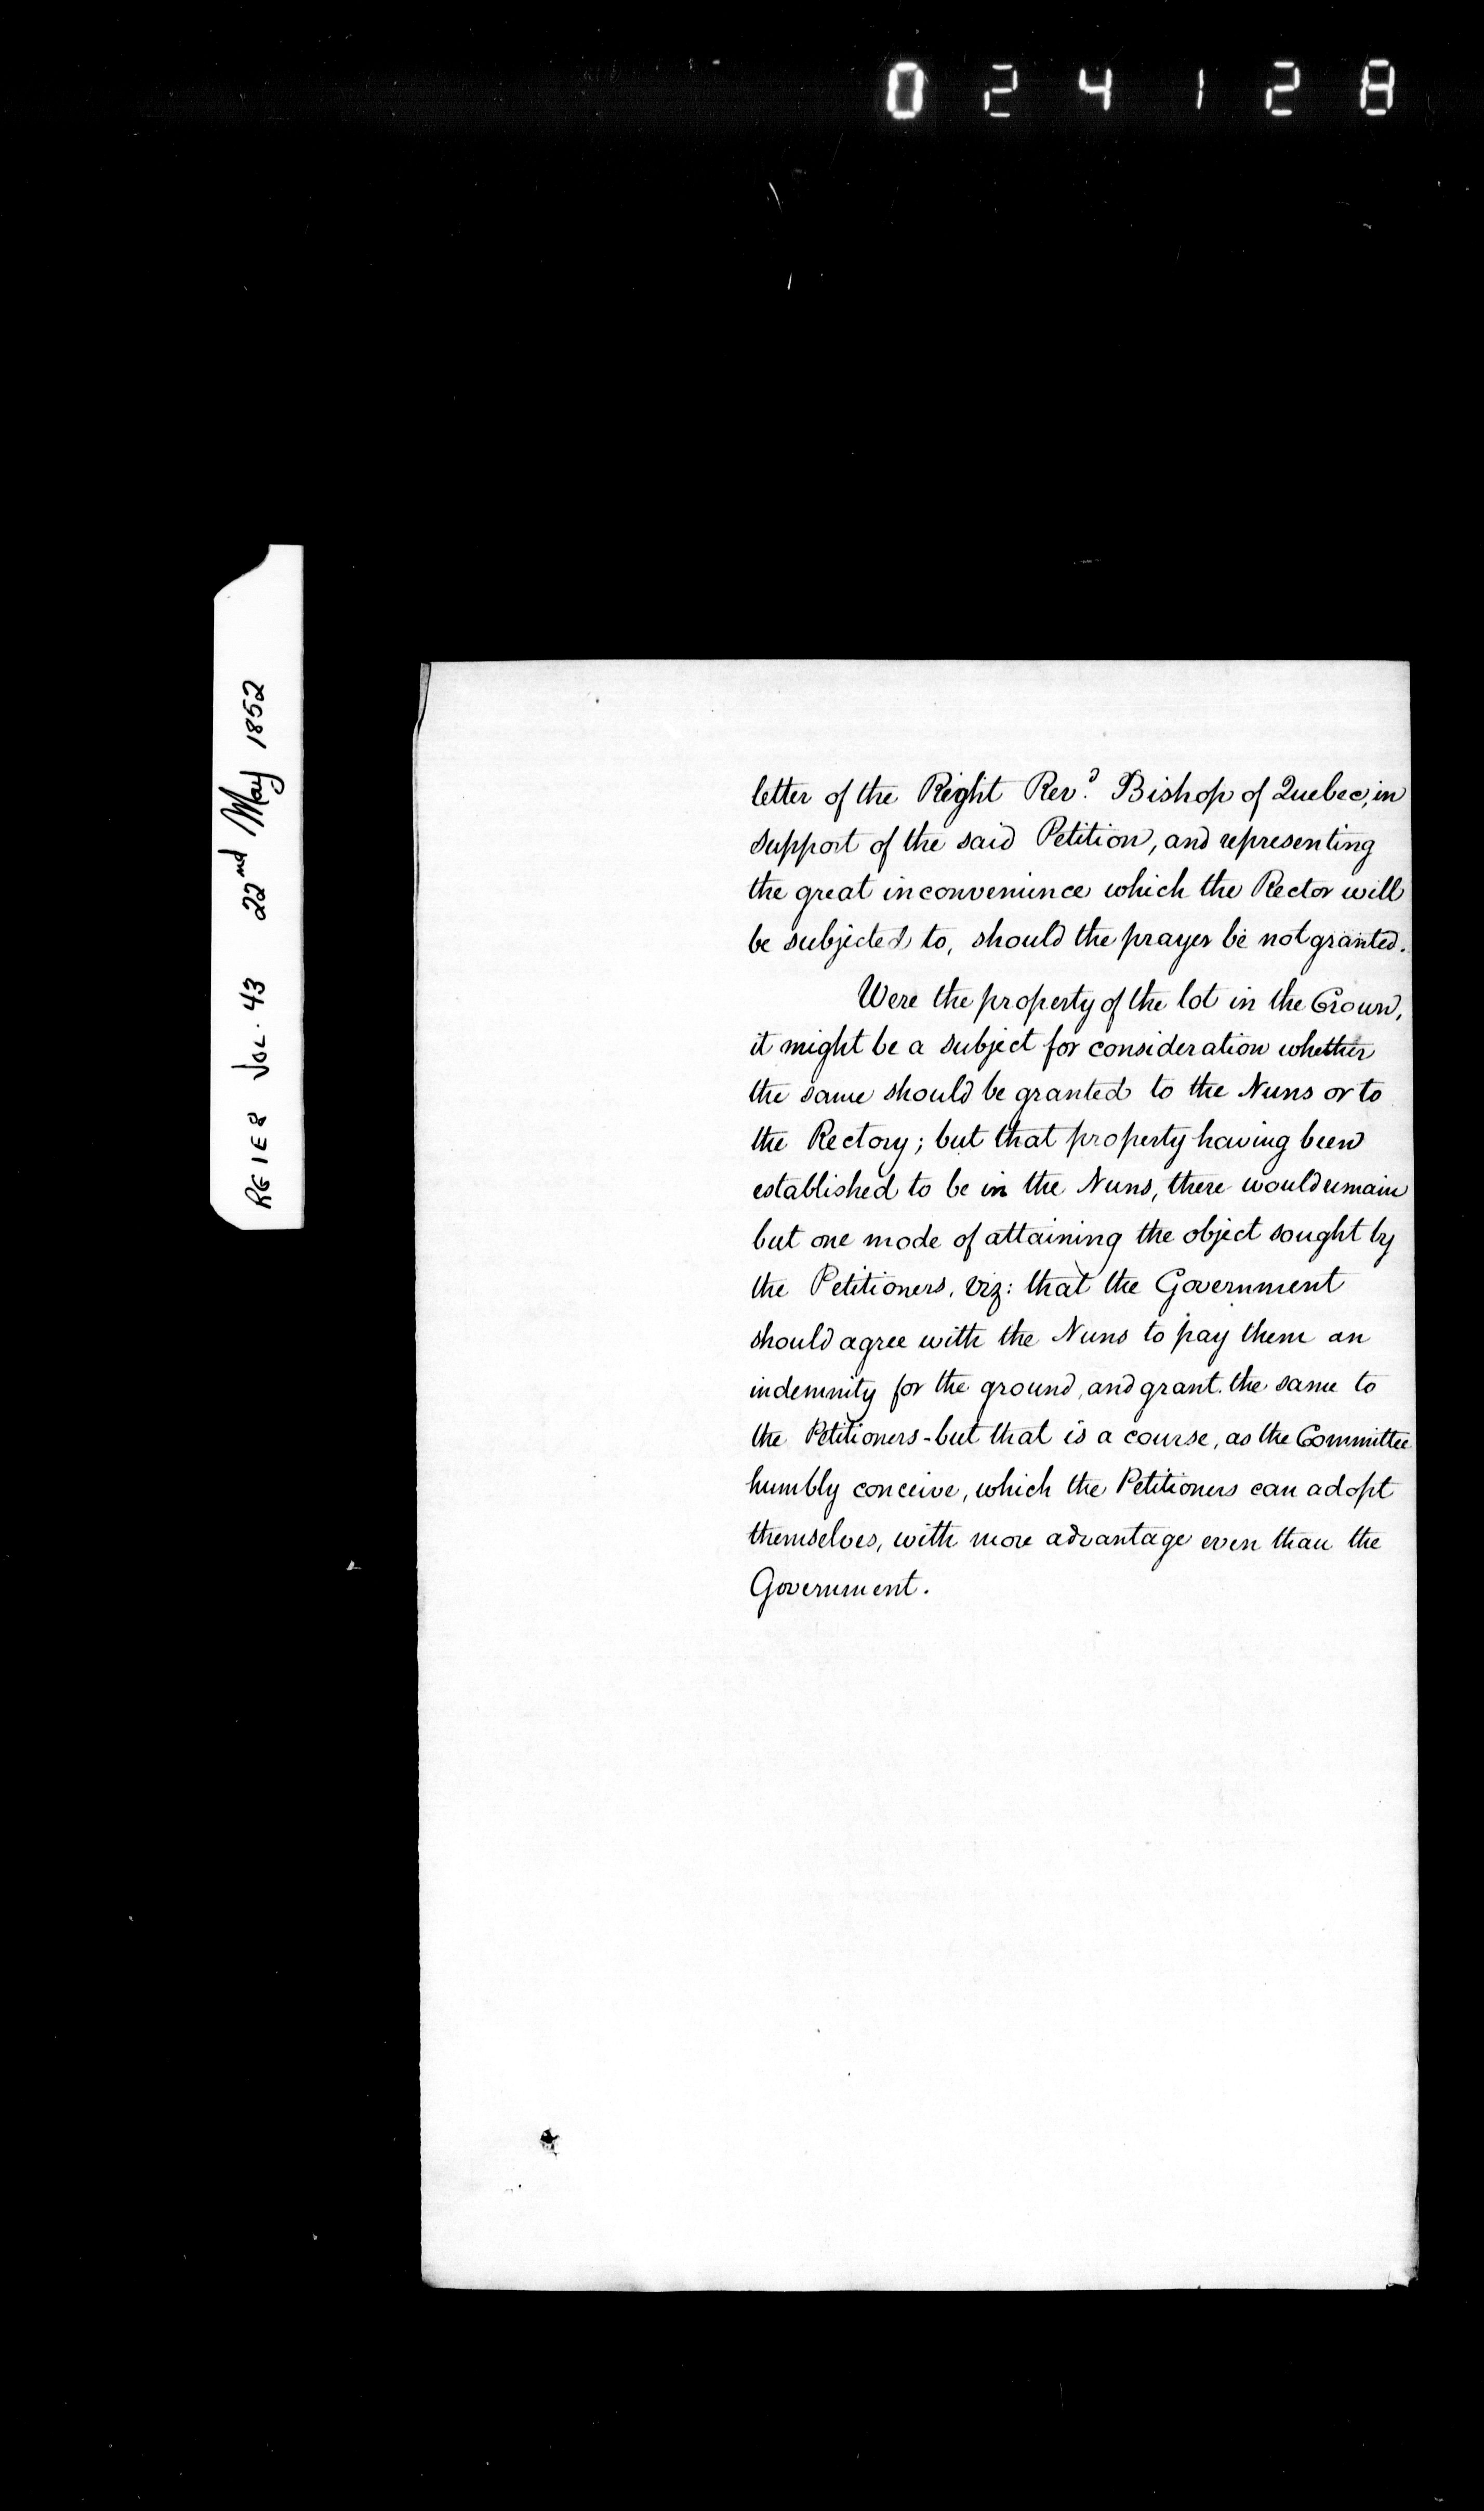 024128
RG1E8 VOL. 43 22nd May 1852
letter of the Right Revd. Bishop of Quebec, in
support of the said Petition, and representing
the great inconvenience which the Rector will
be subjected to, should the prayer be not granted.
Were the property of the lot in the Crown,
it might be a subject for consideration whether
the same should be granted to the Nuns or to
the Rectory; but that property having been
established to be in the Nuns, there would remain
but one mode of attaining the object sought by
the Petitioners, viz: that the Government
should agree with the Nuns to pay them an
indemnity for the ground, and grant the same to
the Petitioners - but that is a course, as the Committee
humbly conceive, which the Petitioners can adopt
themselves, with more advantage even than the
Government.